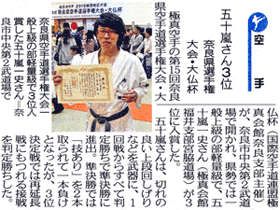 空手
五十嵐さん3位
奈良県選手権
大会・大仏杯
極真空手の第15回奈良
県空手道選手権大会・大
仏杯（国際空手道連盟極真
会館奈良支部主催）
が、奈良市中央第二武道
場で開かれ、県勢では一
般上級の部軽量級で、五
十嵐一史さん（極真会館
福井支部安養協道場）が3
位に入賞した。
五十嵐さんは、切れの
良い上段回しけり
などを武器に、1
回戦からすべて判
定勝ちで準決勝に
進出。準決勝では
「技あり」を2本
取られて一本負け
となったが、3位
決定戦では再延長
戦にもつれる接戦
を判定勝ちした。
奈良県空手道選手権大会
一般上級の部軽量級で3位入
賞した五十嵐一史さん＝奈
良市中央第2武道場で